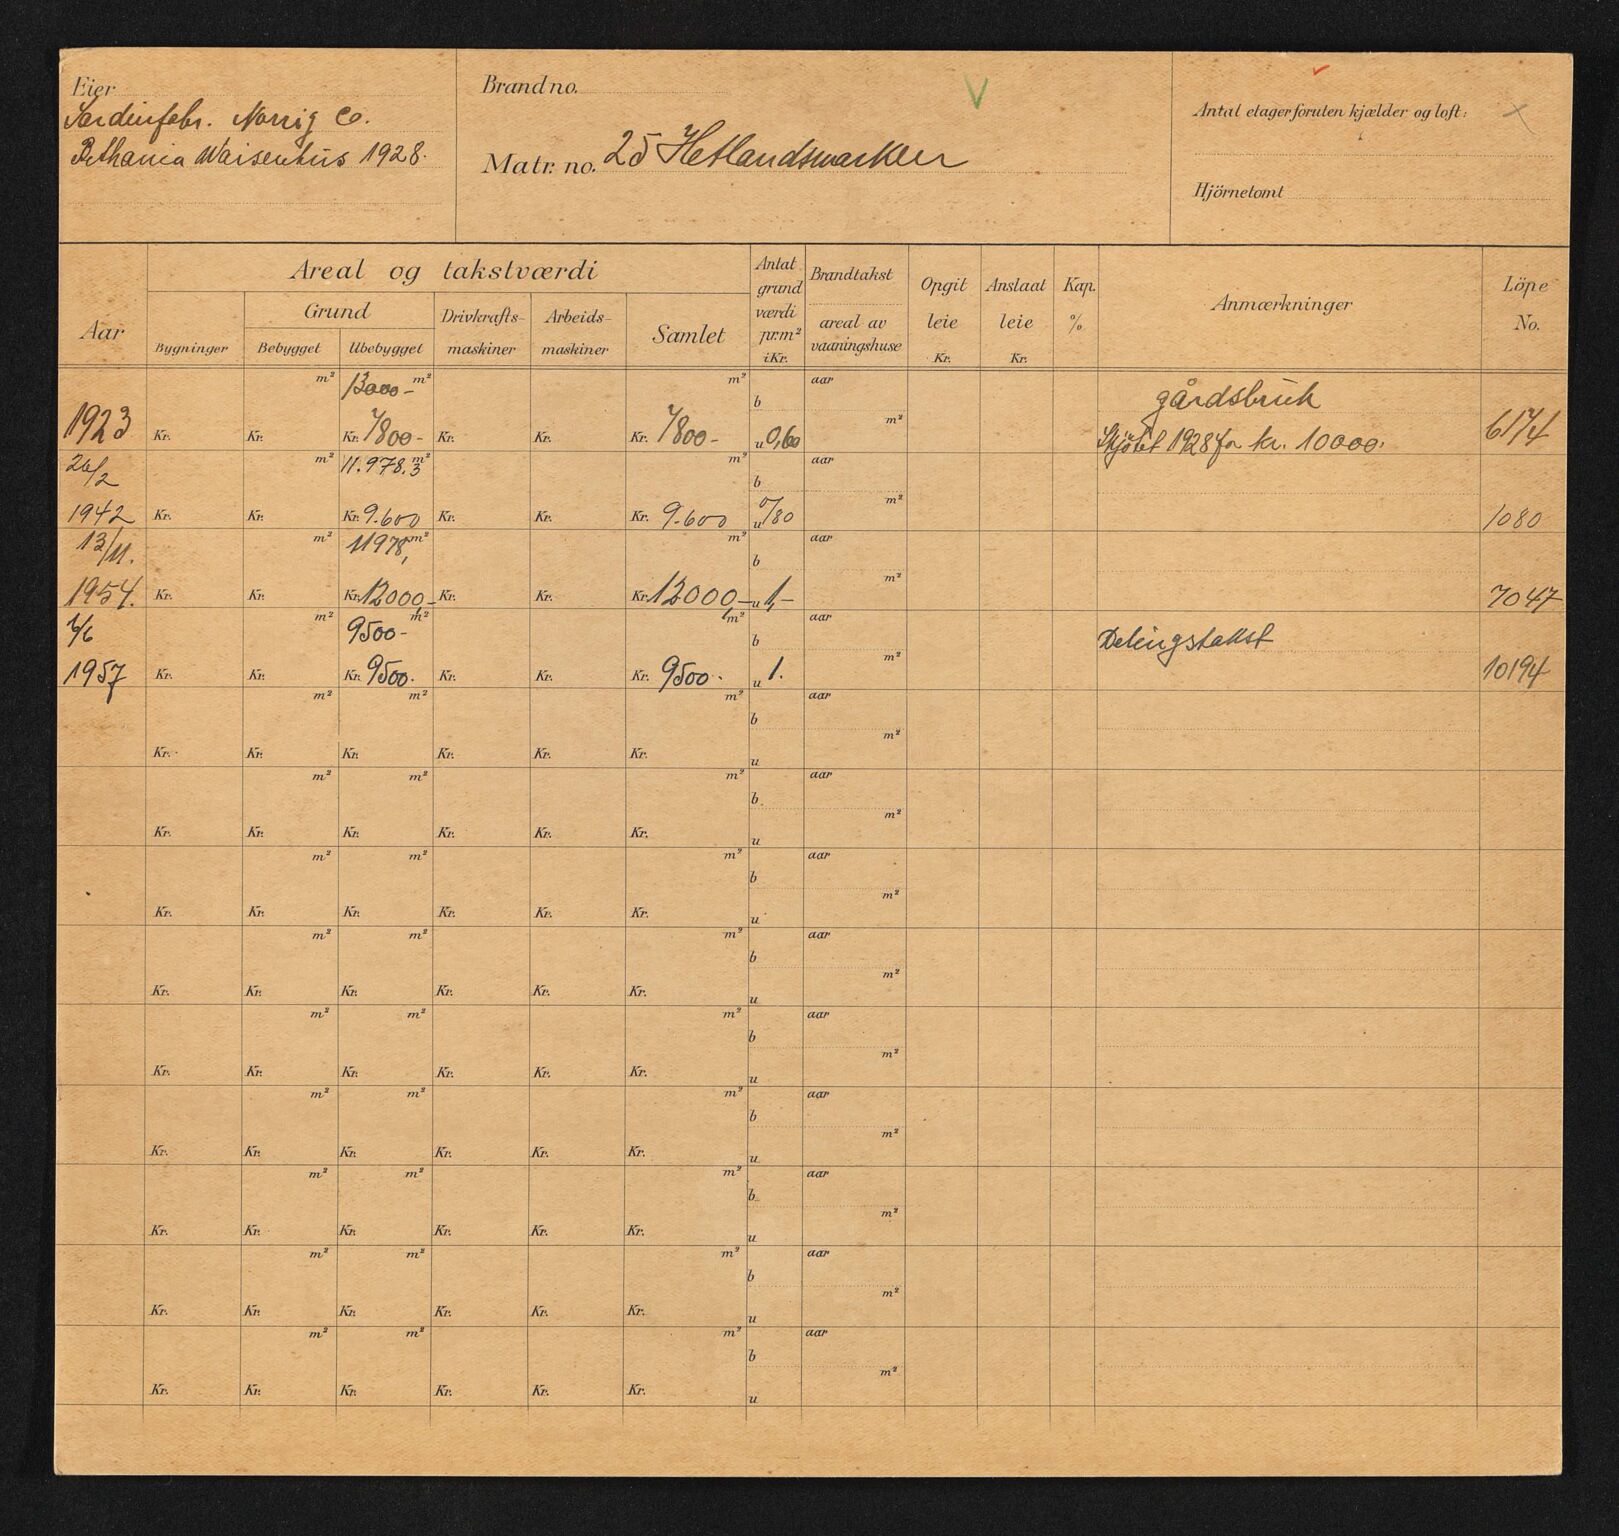 Eier
Sardinfabr. Norrig Co.
Bethania Waisenhus 1928.
Brand no.
Matr. no. 25 Hetlandsmarken
Antal etager foruten kjælder og loft:
Hjörnetomt
Aar
Areal og takstværdi
Grund
Bygninger
Bebygget
Ubebygget
Drivkrafts-
maskiner
Arbeids-
maskiner
Samlet
Antat
grund
værdi
pr.m²
i Kr.
Brandtakst
areal av
vaaningshuse
Opgit
leie
Kr.
Anslaat
leie
Kr.
Kap.
%
Anmærkninger
Löpe
No.
m² 13000- m² m² b aar gårdsbruk
1923 Kr. Kr. Kr. 7800- Kr. Kr. Kr. 7800- u 0,60 m² Skjötet 1928 for kr. 10000. 6174
26/2 m² 11.978.3 m² m² b aar
1942 Kr. Kr. Kr. 9.600 Kr. Kr. Kr. 9.600 u 0/80 m² 1080
13/11. m² 11978, m² m² b aar
1954. Kr. Kr. Kr. 12000,- Kr. Kr. Kr. 12000,- u 1,- m² 7047
6/6 m² 9500- m² m² b aar Delingstakst
1957 Kr. Kr. Kr. 9500. Kr. Kr. Kr. 9500.- u 1. m² 10194
m² m² m² b aar
Kr. Kr. Kr. Kr. Kr. Kr. u m²
m² m² m² b aar
Kr. Kr. Kr. Kr. Kr. Kr. u m²
m² m² m² b aar
Kr. Kr. Kr. Kr. Kr. Kr. u m²
m² m² m² b aar
Kr. Kr. Kr. Kr. Kr. Kr. u m²
m² m² m² b aar
Kr. Kr. Kr. Kr. Kr. Kr. u m²
m² m² m² b aar
Kr. Kr. Kr. Kr. Kr. Kr. u m²
m² m² m² b aar
Kr. Kr. Kr. Kr. Kr. Kr. u m²
m² m² m² b aar
Kr. Kr. Kr. Kr. Kr. Kr. u m²
m² m² m² b aar
Kr. Kr. Kr. Kr. Kr. Kr. u m²